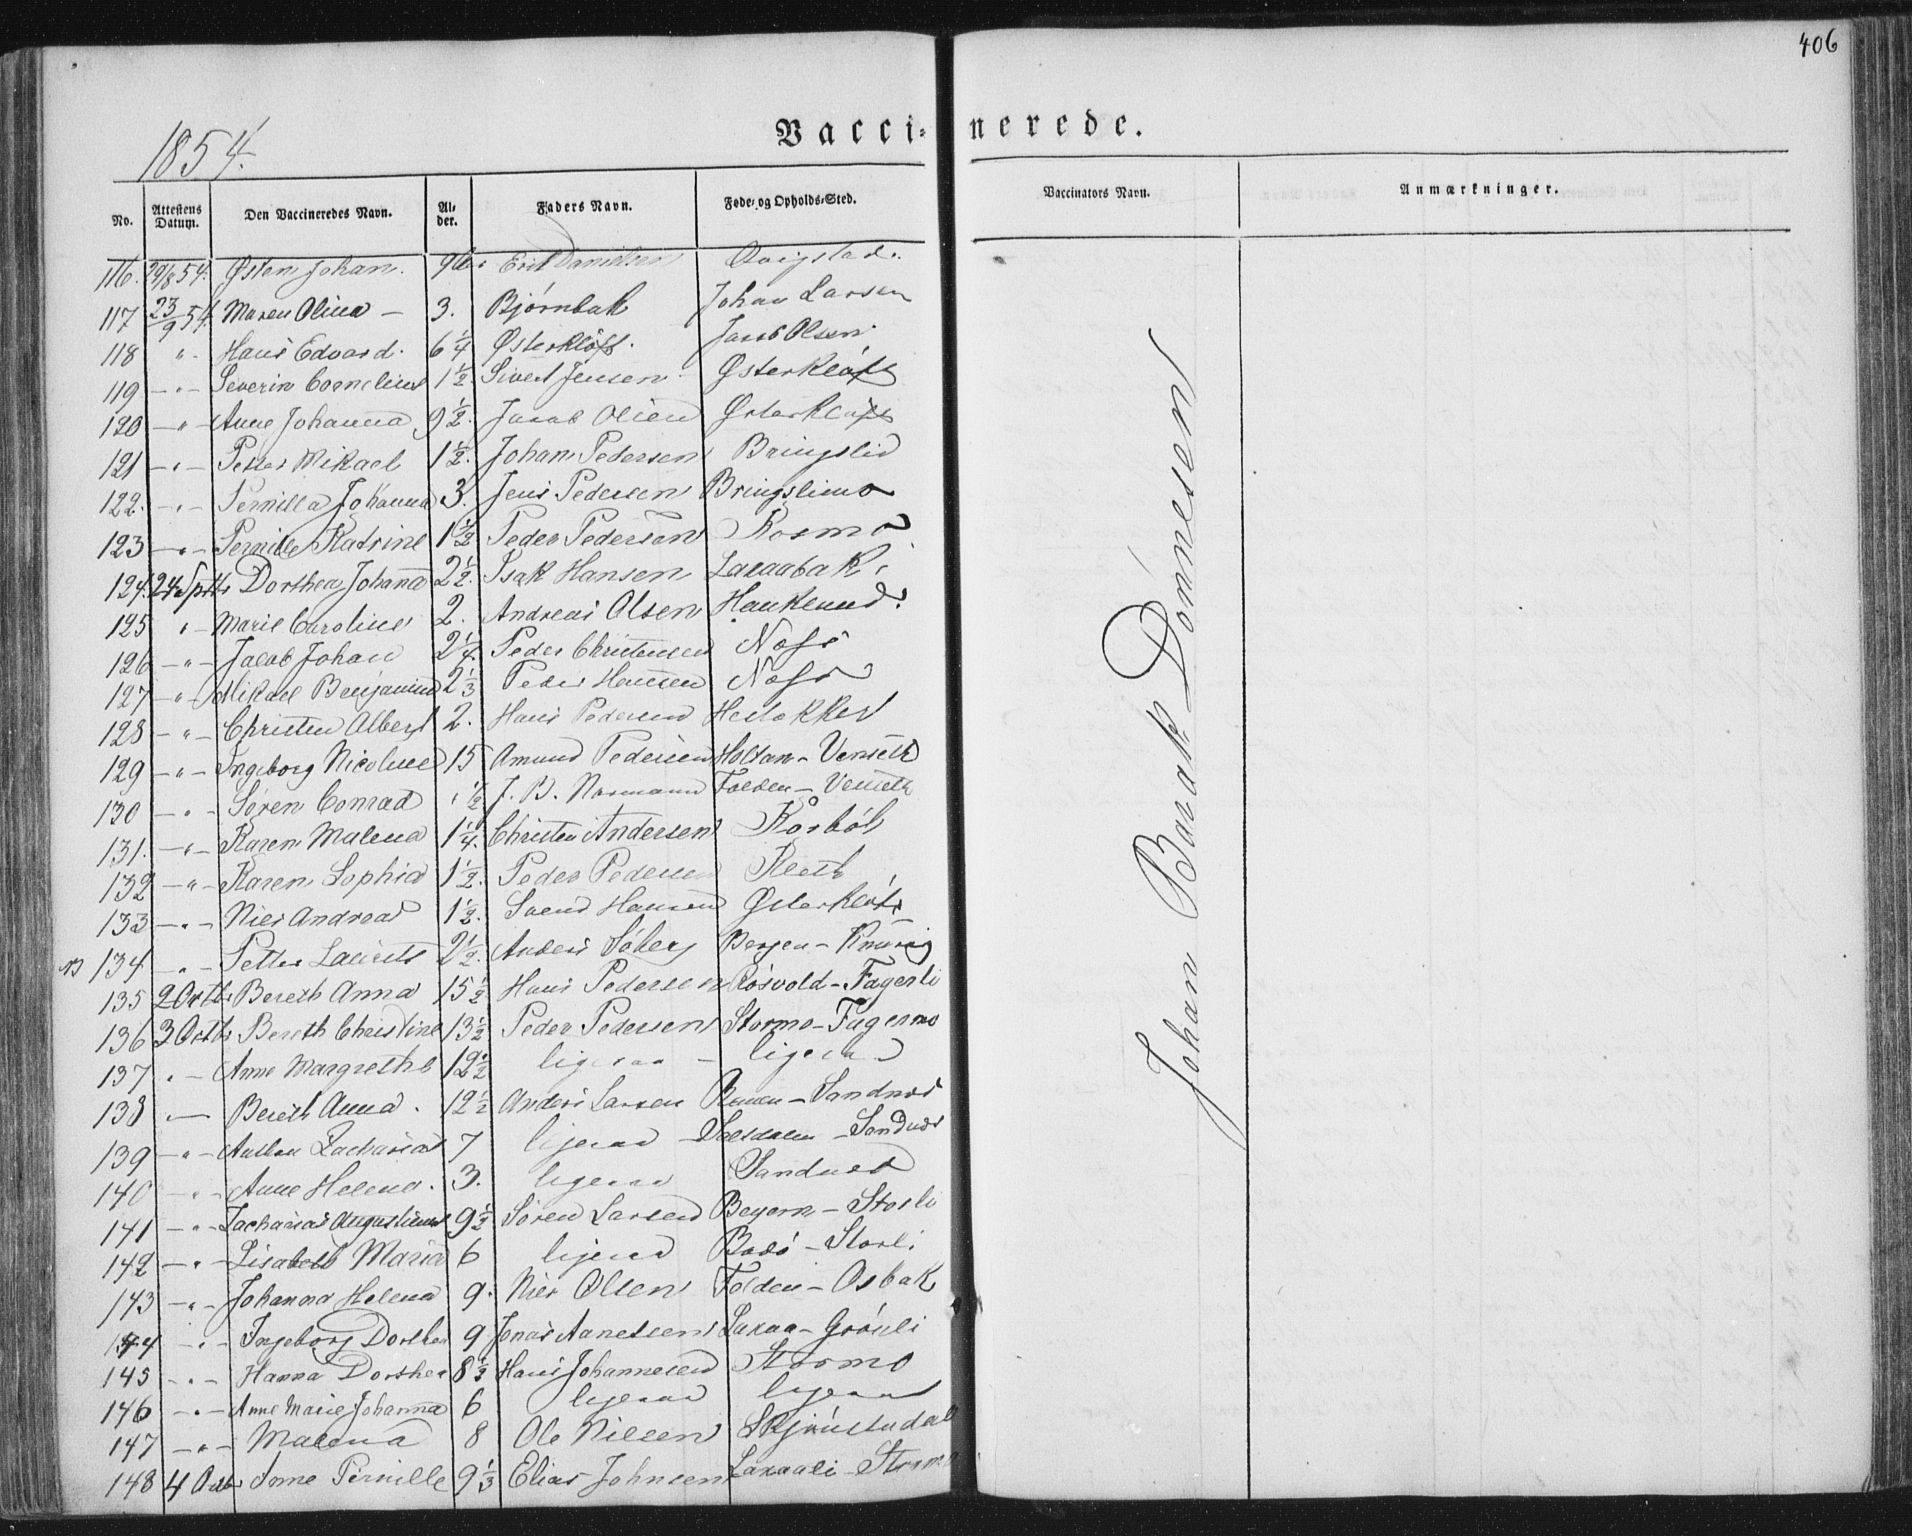 406
1854.
Vacci- nerede.
No. Attestens Datum. Den Vaccineredes Navn. Al- der. Faders Navn. Føde- og Opholds-Sted. Vaccinators Navn. Anmærkninger.
116. 29/8 54. Østen Johan. Erik Danielsen Qvigstad.
117 23/9 54. Maren Olina - 3. Bjørnbak Johan Larsen
118 " - Hans Edvard. 6 1/4 Østerkløft. Jacob Olsen.
119 - " - Severin Cornelius 1 1/2. Sivert Jensen Østerkløft
120 - " - Anne Johanna 9 1/2. Jacob Olsen Østerkløft
121 - " - Petter Mikael 1 1/2. Johan Pedersen Bringslid
122. - " - Pernilla Johanna 3. Jens Pedersen Bringslimo
123 - " - Pernille Katrine 1 1/2 Peder Pedersen Rosmo
124. 24 Sptbr Dorthea Johanna 2 1/2. Isak Hansen Laxaabak
125 " - Marie Caroline 2. Andreas Olsen
126 - " - Jacob Johan 2 1/4. Peder Christensen
127 - " - Mikael Benjamin 2 1/3 Peder Hansen
128 - " - Christen Albert 2. Hans Pedersen
129 - " - Ingeborg Nicoline 15 Amund Pedersen - Venseth
130 - " - Søren Conrad 1/2 J. B. Normann Folden - Venseth
131. - " - Karen Malena 1 1/4. Christen Andersen
132 - " - Karen Sophia 1 1/2. Peder Pedersen
133 - " - Nils Andreas 1 1/2. Svend Hansen Østerkløft
134 - " - Petter Laurits 2 1/2. Anders Bergen -
135 2 Octbr Bereth Anna 15 1/2 Hans Pedersen Røsvold - Fagerli
136 3 Octbr Bereth Christine 13 1/2 Peder Pedersen Stormo - Fagermo
137 " - Anne Margrethe 12 1/2 ligesaa - ligesaa
138 - Bereth Anna. 12 1/2 Anders Larsen - Sandnes
139 - " - Anthon Zacharias 7 ligesaa - Saltdalen - Sandnes
140 - " - Anne Helena. 3. ligesaa Sandnes
141 - " - Zacharias Augustinus 9 1/2 Søren Larsen Beyern - Storli
142 - " - Lisabeth Maria 6 ligesaa Bodø - Storli
143 - " - Johanna Helena 9. Nils Olsen Folden - Osbak
144 - " - Ingeborg Dorthea 9 Jonas Aanetsen Laxaa - Grønli
145 - " - Hanna Dorthea 8 1/2 Hans Johannesen Stormo
146 - " - Anne Marie Johanna 6 ligesaa ligesaa
147 - " - Malena 8 Ole Nilsen Skjønstudal
148 4 Octbr Anne Pernille 9 1/3 Elias Johnsen Laxaali - Stormo
Johan Barak Dønnesen